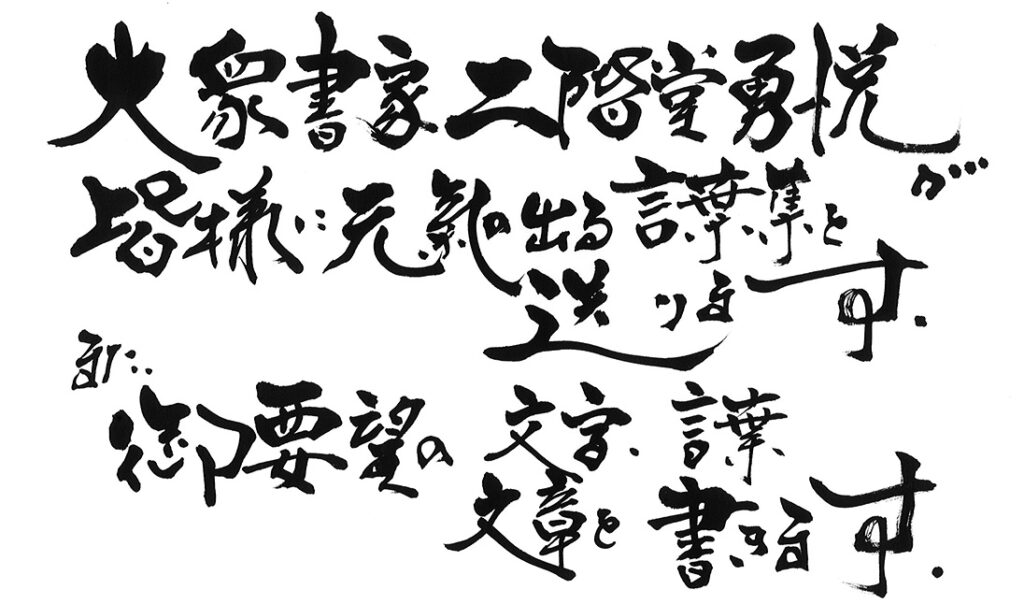 大衆書家二階堂勇悦
が…
皆様に元氣の出る言葉集を
送ります.
また..
御要望の文字.言葉
文章を書きます.